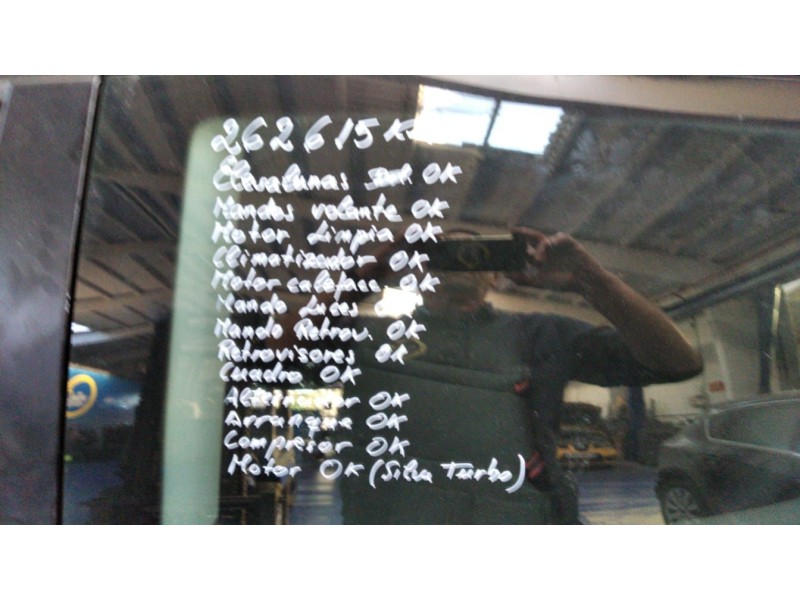 262615K
Elevalunas OK
Mandos volante OK
Motor Limpia OK
Climatizador OK
Motor calefacc OK
Mando Luces
Mando Retrov. OK
Retrovisores OK
Cuadro OK
Alternador OK
Arranque OK
Compresor OK
Motor OK (Silva Turbo)